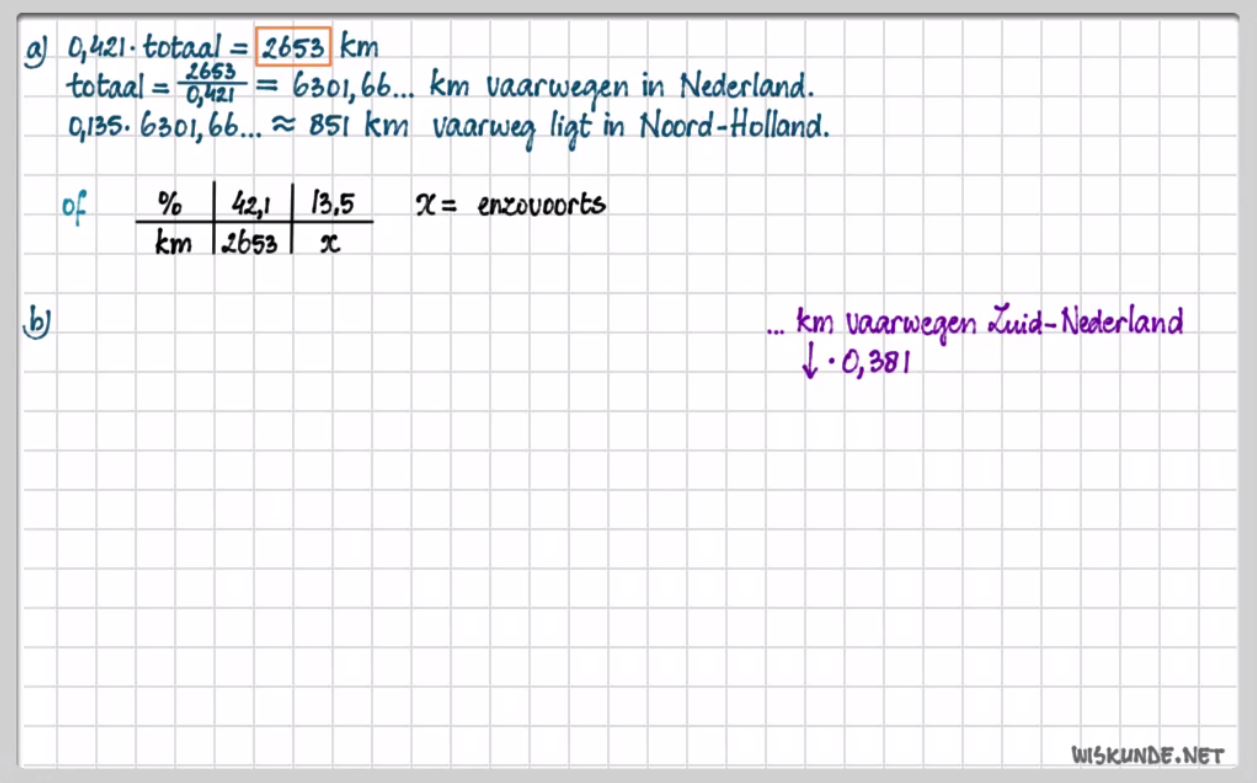 a) 0,421 · totaal = 2653 km
totaal = 2653/0,421 = 6301,66... km vaarwegen in Nederland.
0,135 · 6301,66... ≈ 851 km vaarweg ligt in Noord-Holland.
of % 42,1 13,5 x = enzovoorts
km 2653 x
b) ... km vaarwegen Zuid-Nederland
↓ · 0,381
WISKUNDE.NET